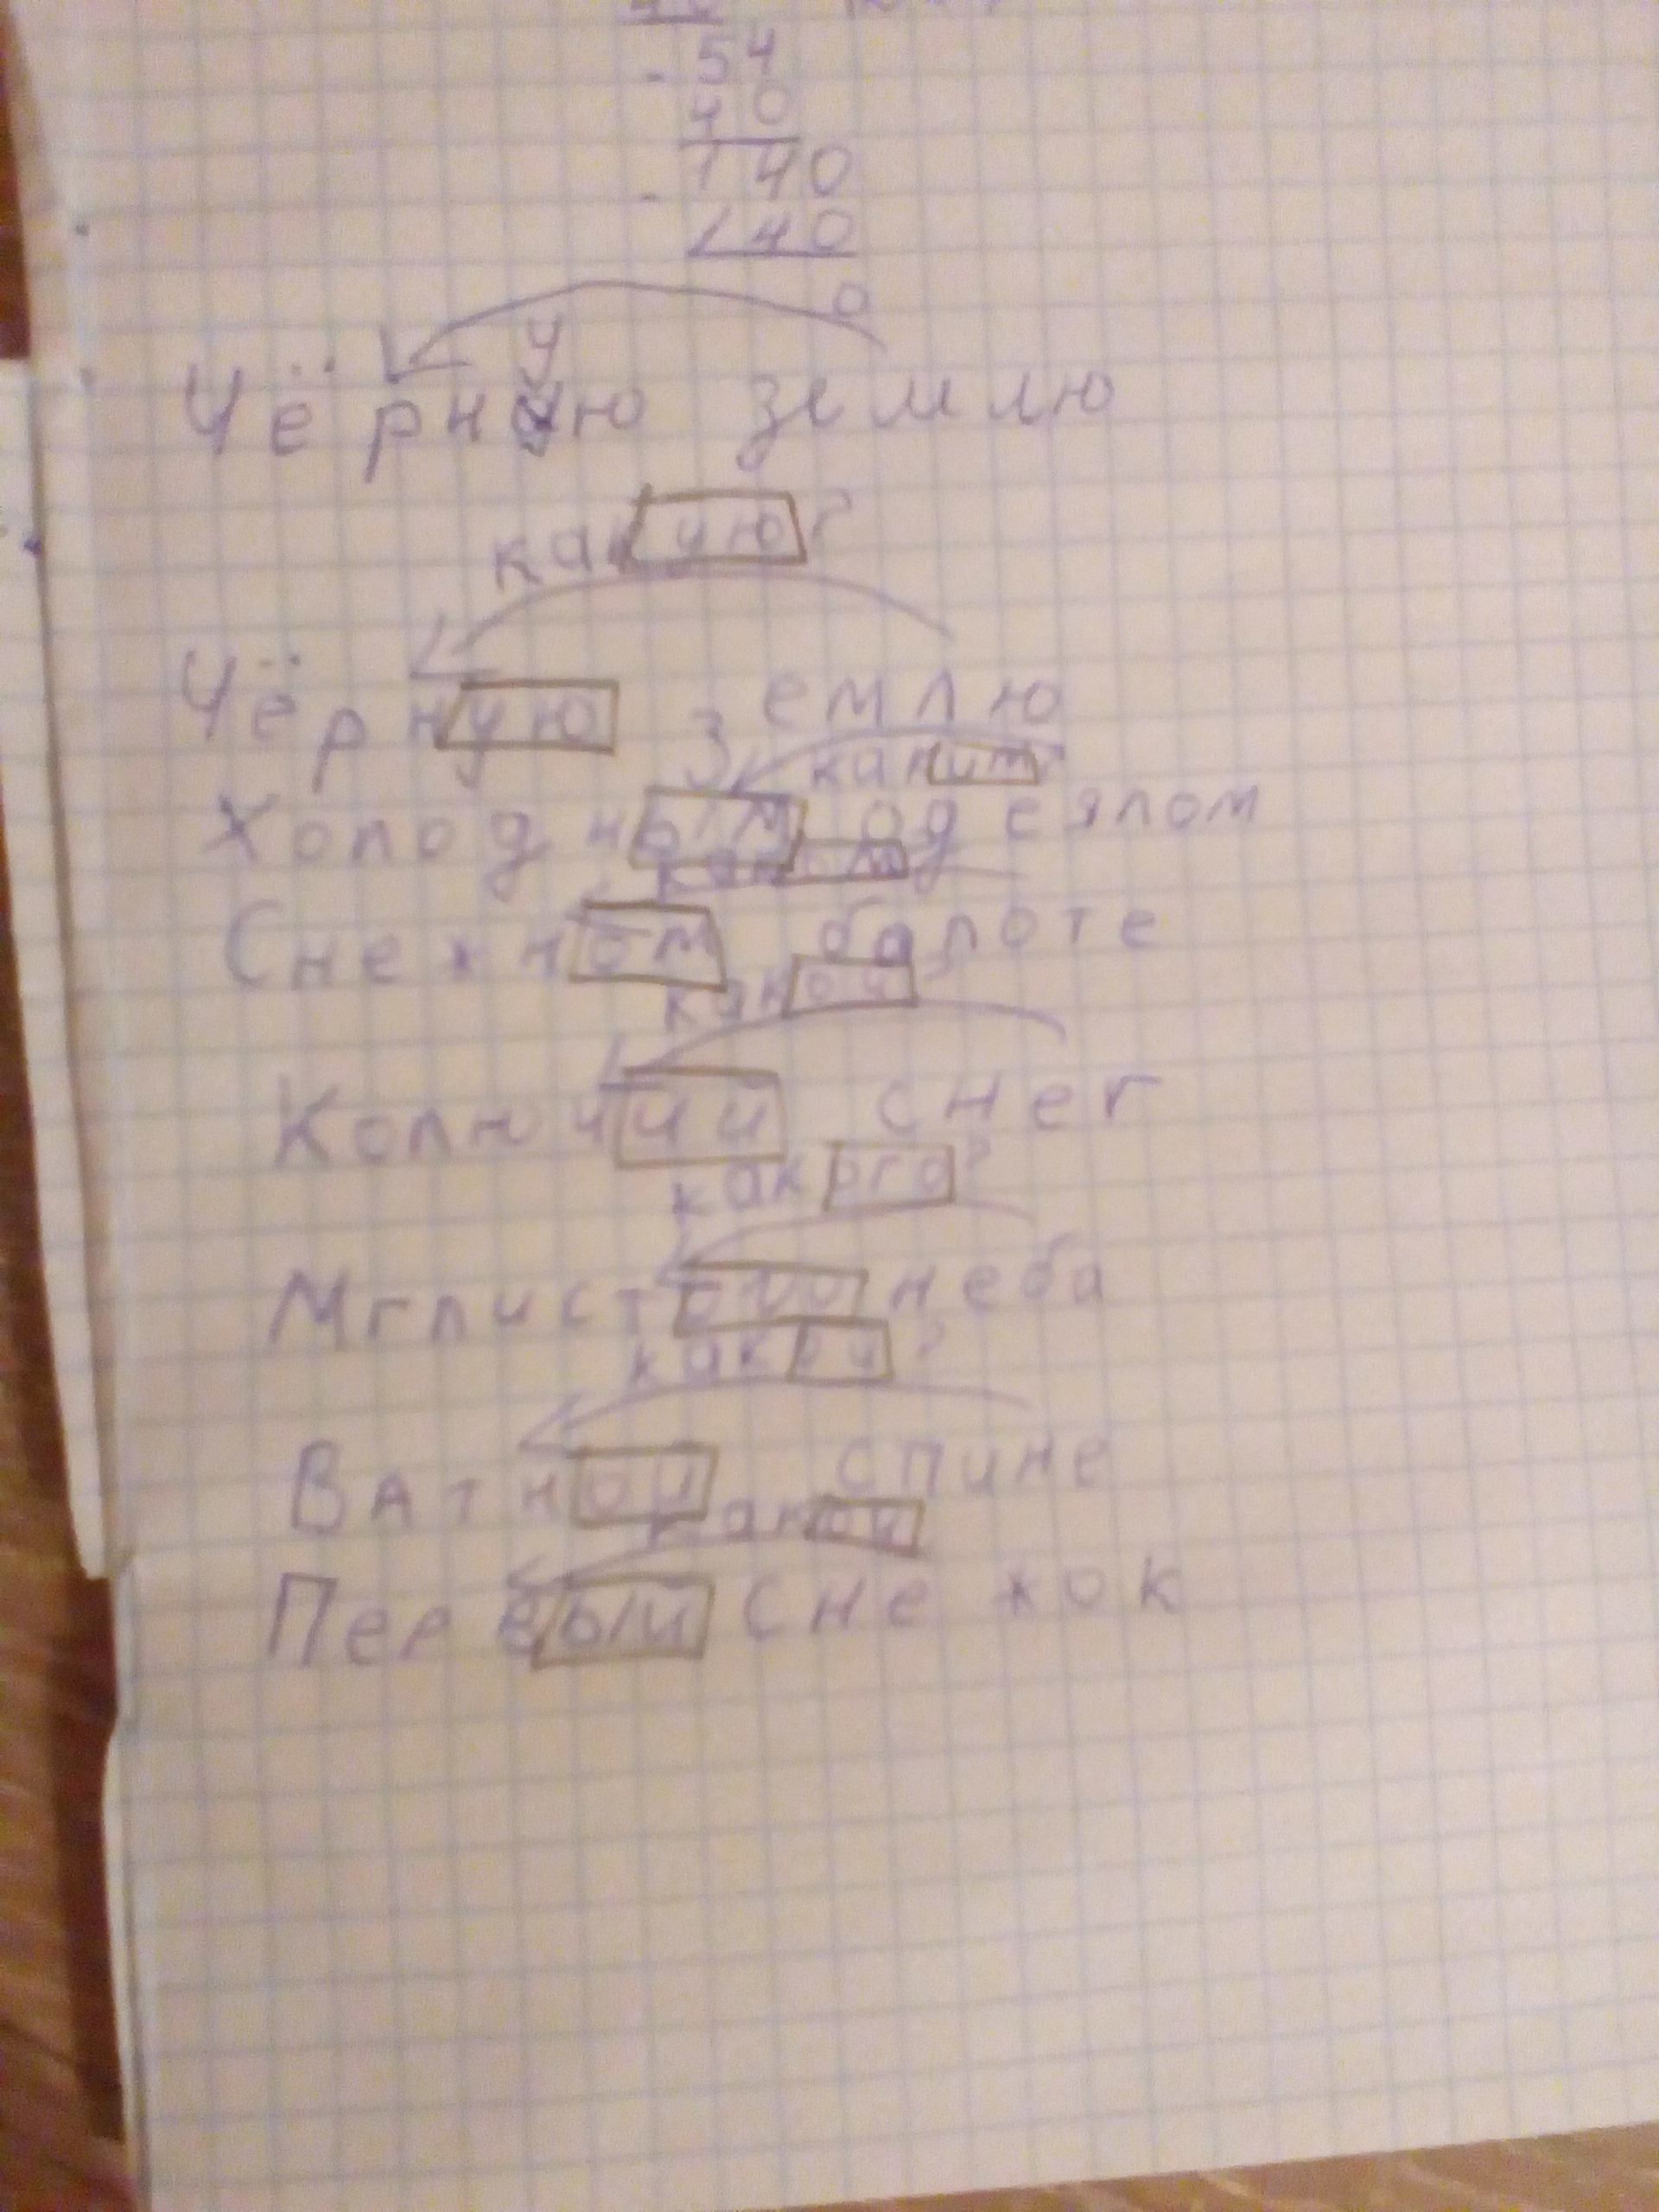 54
- 40
140
- 140
0
у
Чёрную землю
какую?
Чёрную землю
каким?
Холодным одеялом
каком
Снежном балоте
какой?
Колючий снег
какого?
Мглистого неба
какой?
Ватной спине
какой
Первый снежок